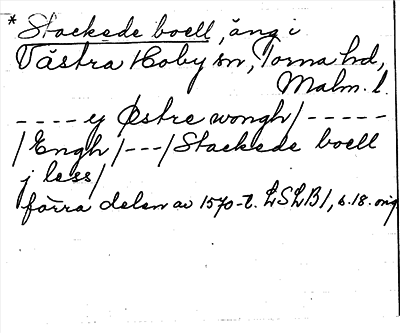 * Stackede boell, äng i
Västra Hoby sn, Torna hd,
Malm. l.
- - - - y Østre wongh/ - - - - -
/Engh/ - - - /Stackede boell
j less/
förra delen av 1570-t. LSLB1, s. 18. orig